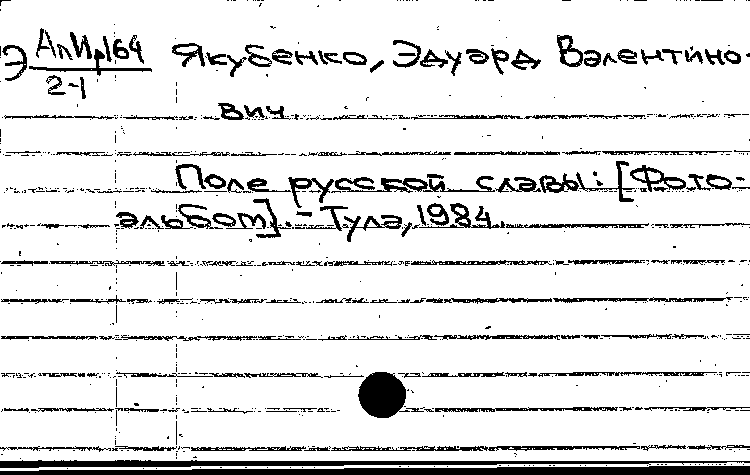 Э АлИр164 Якубенко, Эдуард Валентино-
2-1
вич.
Поле русской славы: [Фото-
альбом]. – Тула, 1984.